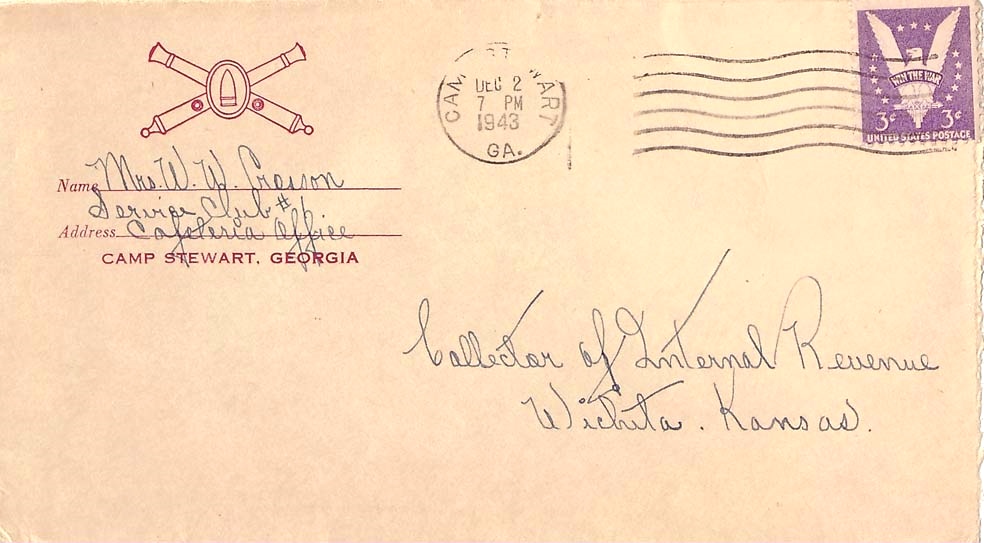 CAMP STEWART
DEC 2
7 PM
1943
GA.
WIN THE WAR
3¢ 3¢
UNITED STATES POSTAGE
Name Mrs. W. W. Crosson
Service Club #1
Address Cafeteria Office
CAMP STEWART, GEORGIA
Collector of Internal Revenue
Wichita. Kansas.